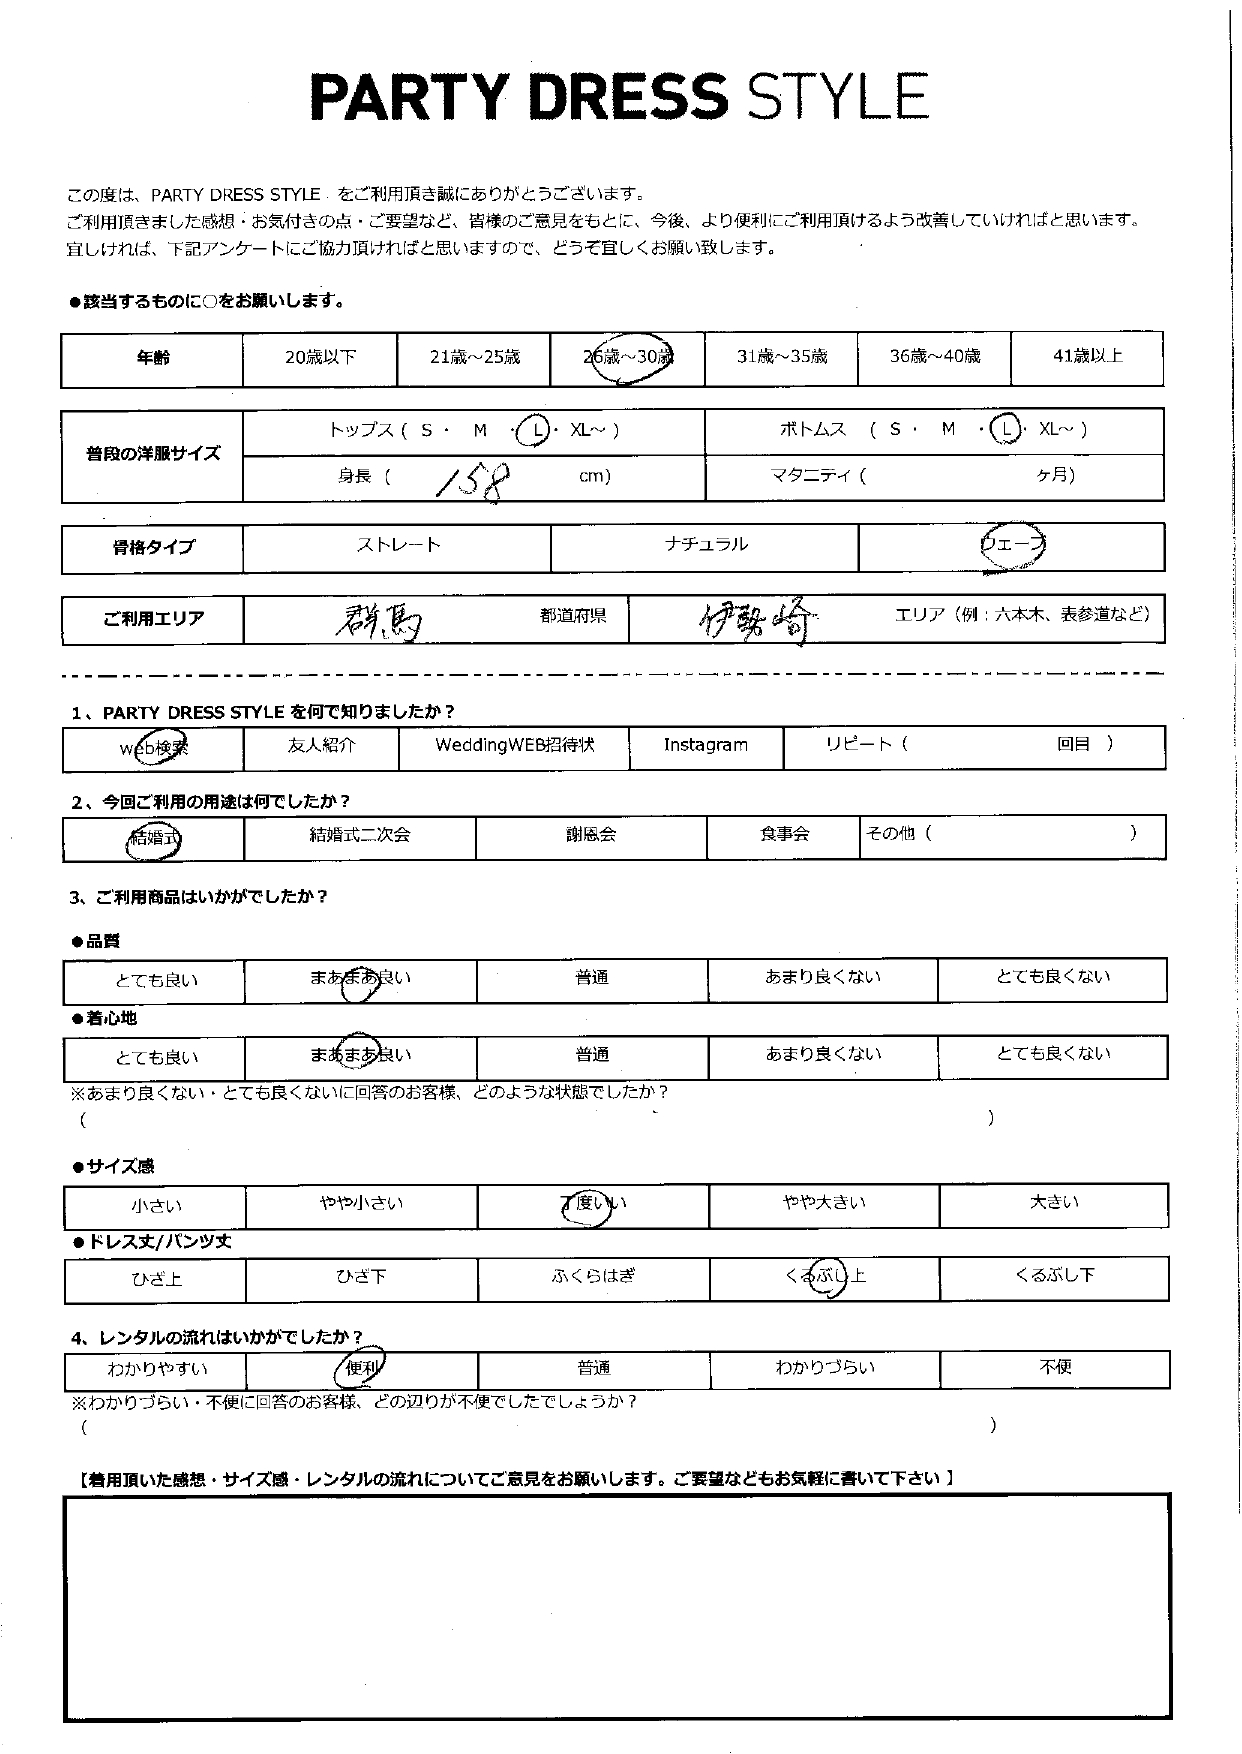 PARTY DRESS STYLE
この度は、PARTY DRESS STYLE をご利用頂き誠にありがとうございます。
ご利用頂きました感想・お気付きの点・ご要望など、皆様のご意見をもとに、今後、より便利にご利用頂けるよう改善していければと思います。
宜しければ、下記アンケートにご協力頂ければと思いますので、どうぞ宜しくお願い致します。
●該当するものに○をお願いします。
年齢 20歳以下 21歳～25歳 26歳～30歳 31歳～35歳 36歳～40歳 41歳以上
普段の洋服サイズ
トップス ( S ・ M ・ L ・ XL～ ) ボトムス ( S ・ M ・ L ・ XL～ )
身長 ( 158 cm) マタニティ ( ヶ月)
骨格タイプ ストレート ナチュラル ウェーブ
ご利用エリア 群馬 都道府県 伊勢崎 エリア（例：六本木、表参道など）
1、PARTY DRESS STYLE を何で知りましたか？
web検索 友人紹介 WeddingWEB招待状 Instagram リピート ( 回目 )
2、今回ご利用の用途は何でしたか？
結婚式 結婚式二次会 謝恩会 食事会 その他 ( )
3、ご利用商品はいかがでしたか？
●品質
とても良い まあまあ良い 普通 あまり良くない とても良くない
●着心地
とても良い まあまあ良い 普通 あまり良くない とても良くない
※あまり良くない・とても良くないに回答のお客様、どのような状態でしたか？
( )
●サイズ感
小さい やや小さい 丁度いい やや大きい 大きい
●ドレス丈/パンツ丈
ひざ上 ひざ下 ふくらはぎ くるぶし上 くるぶし下
4、レンタルの流れはいかがでしたか？
わかりやすい 便利 普通 わかりづらい 不便
※わかりづらい・不便に回答のお客様、どの辺りが不便でしたでしょうか？
( )
【着用頂いた感想・サイズ感・レンタルの流れについてご意見をお願いします。ご要望などもお気軽に書いて下さい 】